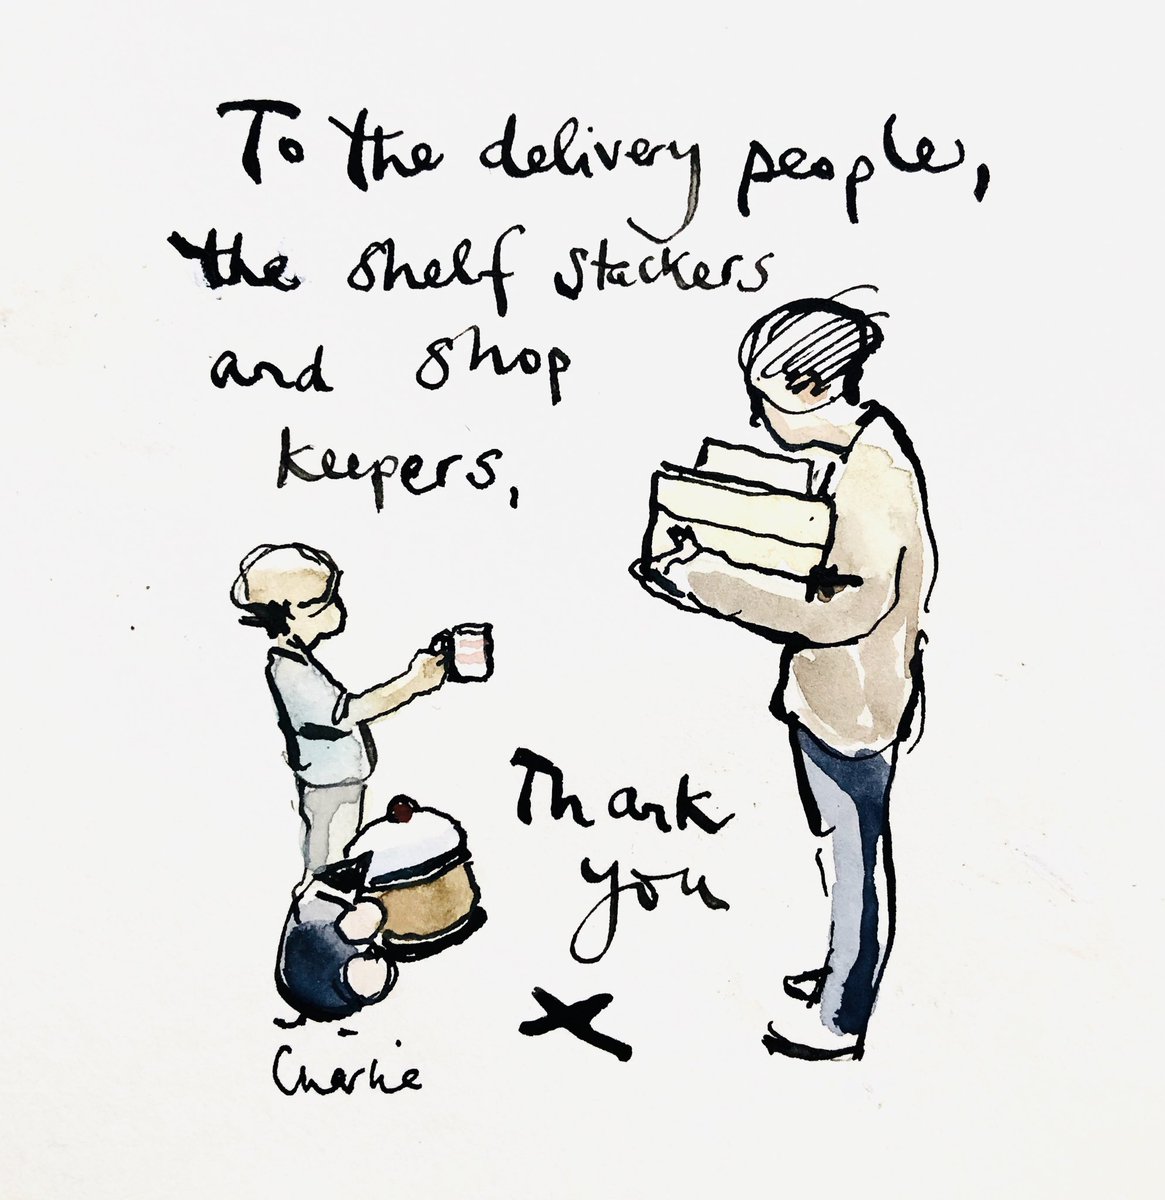 To the delivery people,
the shelf stackers
and shop
keepers,
Thank
you
x
Charlie